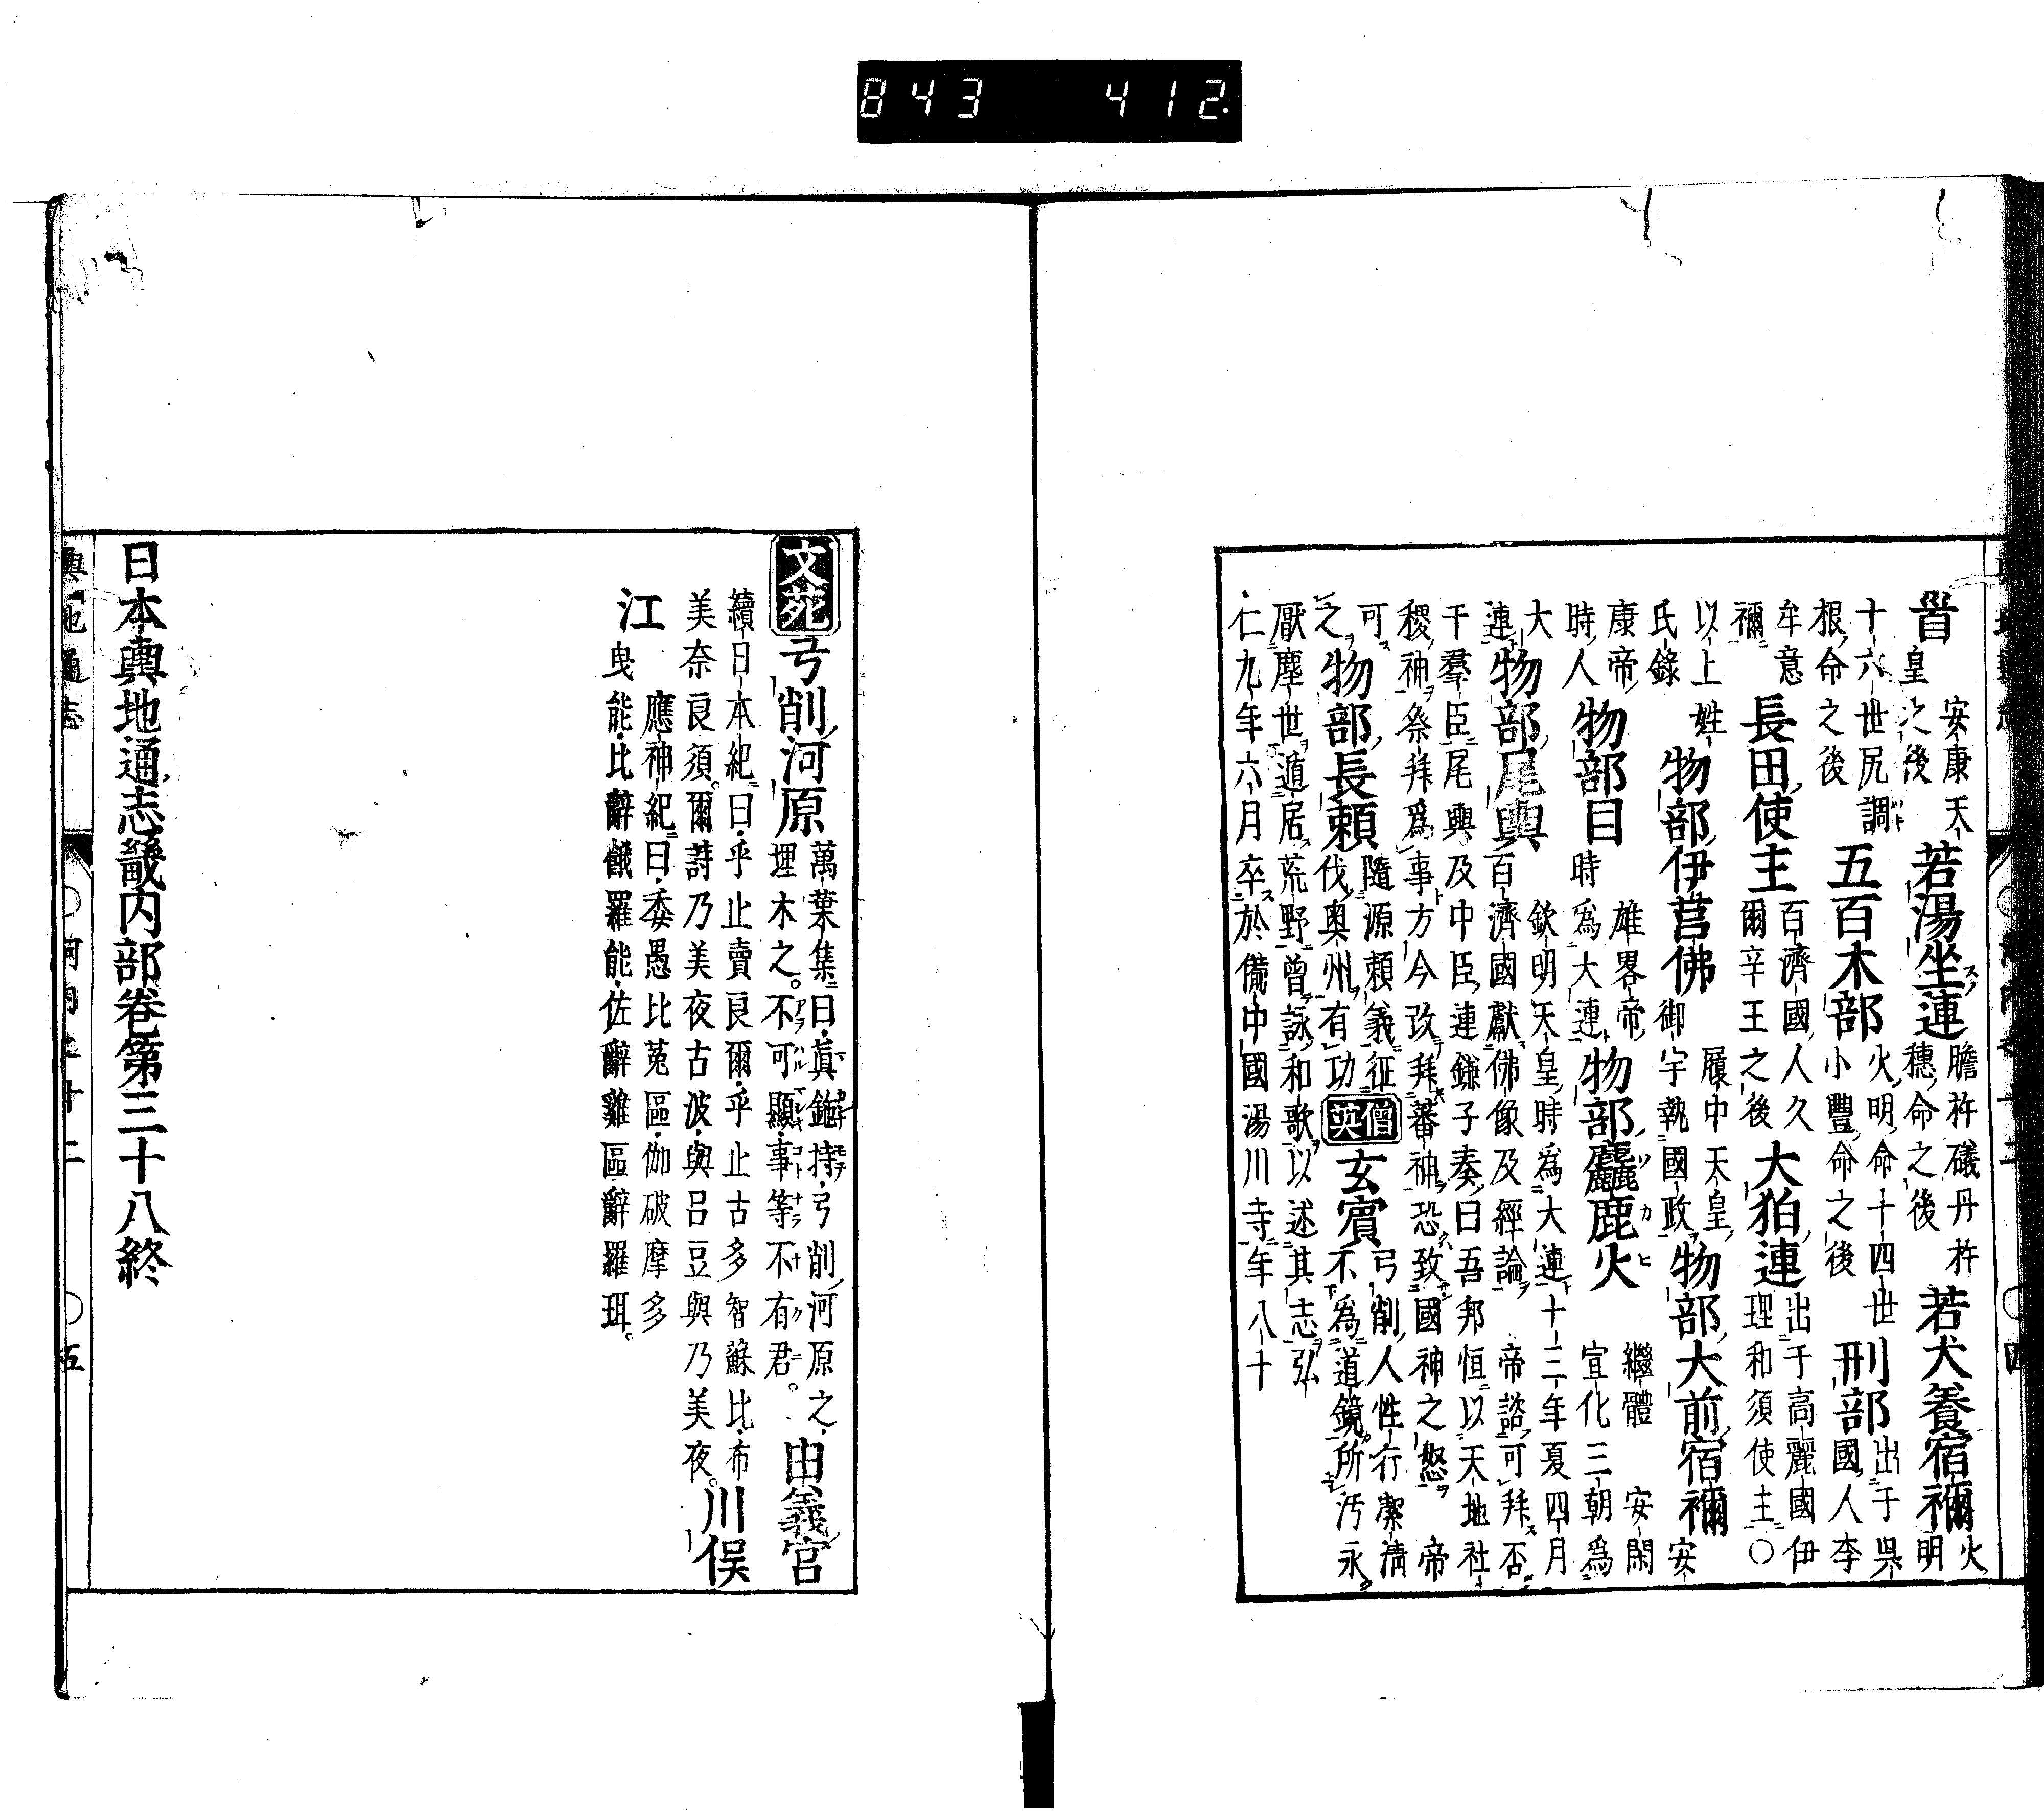 首安康天皇之後若湯坐連膽杵磯丹杵穗命之後若犬養宿禰火明
十六世尻調根命之後五百木部火明命十四世小豐命之後刑部出于呉國人李
牟意禰長田使主百濟國人久爾辛王之後大狛連出于高麗國伊理和須使主○
以上姓氏錄物部伊莒佛履中天皇御宇執國政物部大前宿禰安
康帝時人物部目雄畧帝時爲大連物部麤鹿火繼體 安閑宣化三朝爲
大連物部尾輿欽明天皇時爲大連十三年夏四月百濟國獻佛像及經論帝諮可拜否
干羣臣尾輿及中臣連鎌子奏曰吾邦恒以天地社稷神祭拜爲事方今改拜蕃神恐致國神之怒 帝
可之物部長頼隨源頼義征伐奥州有功僧英玄賓弓削人性行潔淸不爲道鏡所汚永
厭塵世遁居荒野曾詠和歌以述其志弘仁九年六月卒於備中國湯川寺年八十
文苑弓削河原萬葉集曰眞鉇持弓削河原之埋木之。不可顯事等不有君。由義宮
續日本紀曰乎止賣良爾乎止古多智蘇比布美奈良須。爾詩乃美夜古波與呂豆與乃美夜。川俣
江應神紀曰委愚比菟區伽破摩多曳能比辭餓羅能佐辭雞區辭羅珥。
日本輿地通志畿内部卷第三十八終
輿地通志 ○河内之十二 ○五
843 412